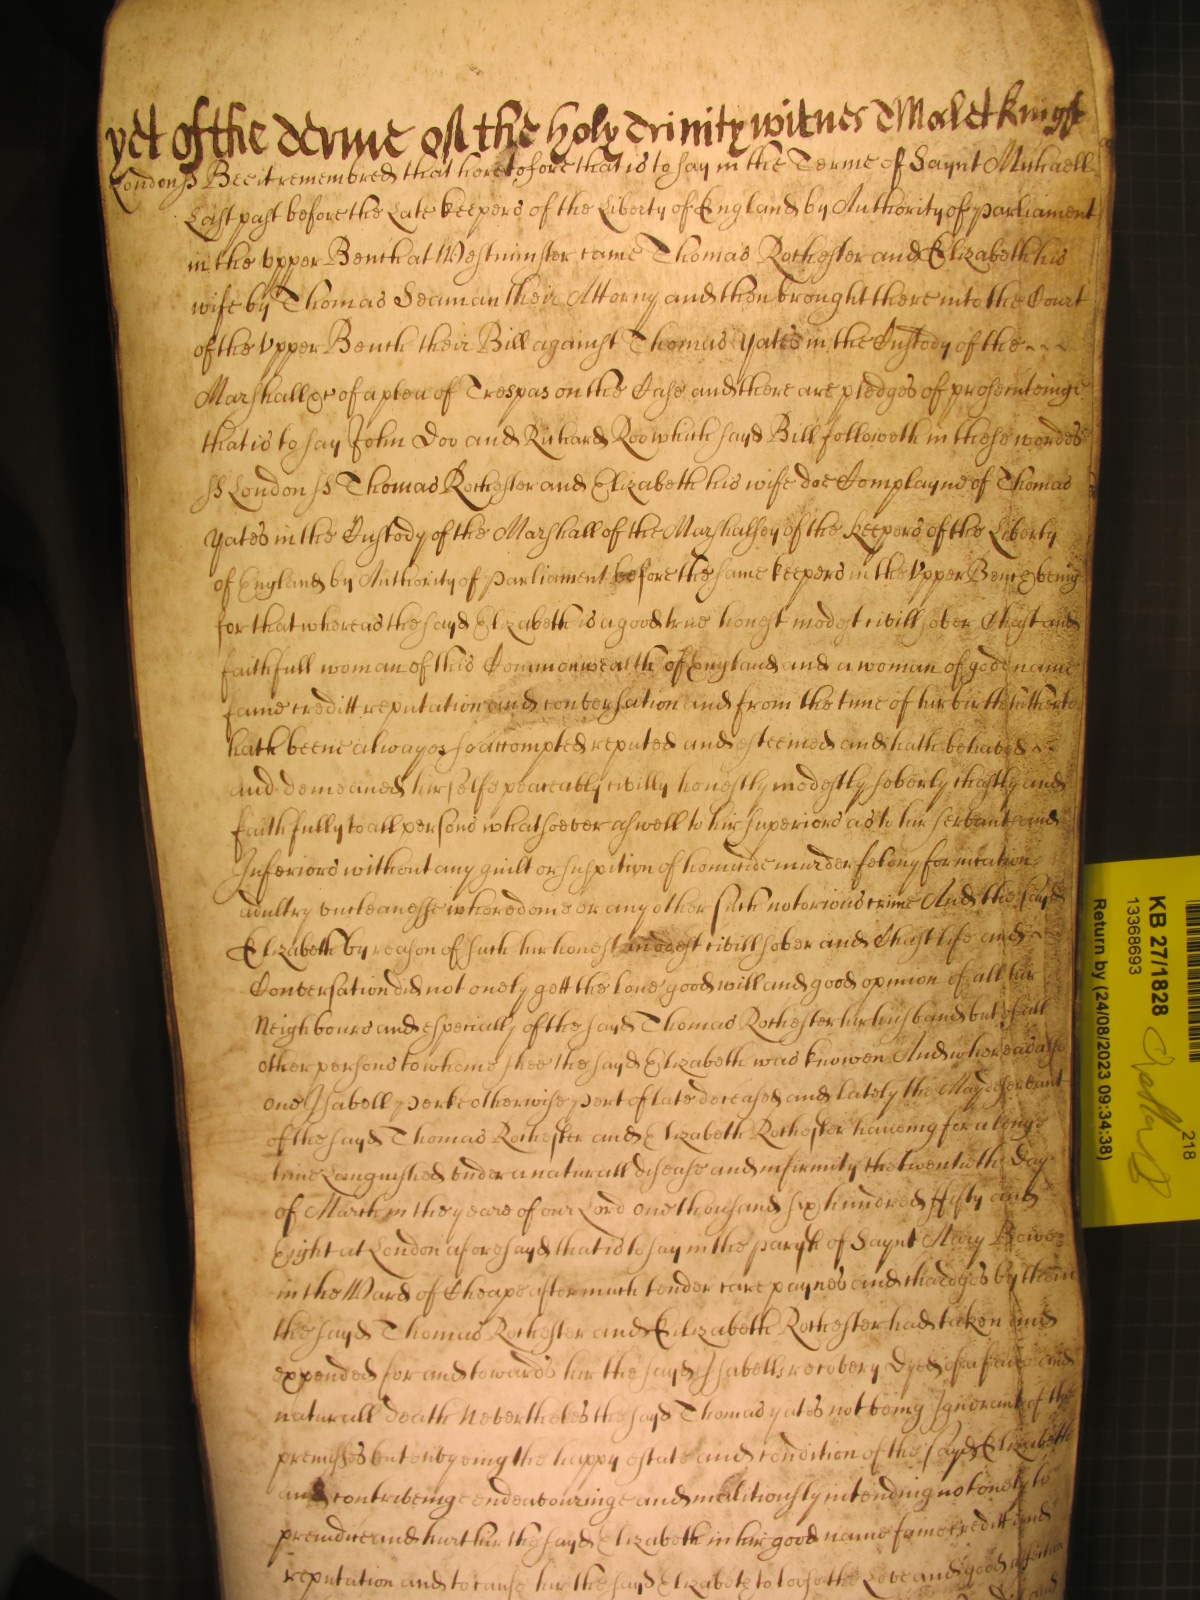 yet of the terme of the holy trinity witnes Malet knight
London ss Bee it remembred that heretofore that is to say in the Terme of Saynt Michaell
Last past before the Late keepers of the Liberty of England by Authority of parliament
in the Upper Bench at Westminster came Thomas Rochester and Elizabeth his
wife by Thomas Seaman their Attorny and then brought there into the Court
of the Upper Bench their Bill against Thomas Yates in the Custody of the
Marshall &c of a plea of Trespas on the Case and there are pledges of prosecuteinge
that is to say John Doo and Richard Roo which sayd Bill followeth in these wordes
ss London ss Thomas Rochester and Elizabeth his wife doe Complayne of Thomas
Yates in the Custody of the Marshall of the Marshalsey of the keepers of the Liberty
of England by Authority of parliament before the same keepers in the Upper Bench being
for that whereas the sayd Elizabeth is a good true honest modest civill sober Chast and
faithfull woman of this Commonwealth of England and a woman of good name
fame creditt reputation and conversation and from the time of hir birth hitherto
hath beene alwayes so accompted reputed and esteemed and hath behaved
and demeaned hir selfe peaceably civilly honestly modestly soberly chastly and
faithfully to all persons whatsoever aswell to hir superiors as to hir servants and
Inferiors without any guilt or suspition of homicide murder felony fornication
adultry uncleanesse whoredome or any other such notorious crime And the sayd
Elizabeth by reason of such hir honest modest civill sober and Chast life and
Conversation did not onely gett the love good will and good opinion of all hir
Neighbours and especially of the sayd Thomas Rochester hir husband but of all
other persons to whome shee the sayd Elizabeth was knowen And whereas alsoe
one Isabell perke otherwise pert of late deceased and lately the Mayde servant
of the sayd Thomas Rochester and Elizabeth Rochester haveing for a longe
time Languished under a naturall disease and infirmity the twentieth day
of March in the yeare of our Lord one thousand six hundred fifty and
Eight at London aforesayd that is to say in the parish of Saynt Mary Bowe
in the Ward of Cheape after much tender care paynes and chardges by them
the sayd Thomas Rochester and Elizabeth Rochester had taken and
expended for and towards hir the sayd Isabells recovery dyed of a and
naturall death Neverthelesse the sayd Thomas yates not being Ignorant of the
premisses but envyeing the happy estate and condition of the sayd Elizabeth
and contriveinge endeavouringe and malitiously intending not onely to
preiudice and hurt hir the sayd Elizabeth in hir good name fame creditt and
reputation and to cause hir the sayd Elizabeth to loose the Love and good
KB 27/1828
13368693
Return by (24/08/2023 09:34:38)
218